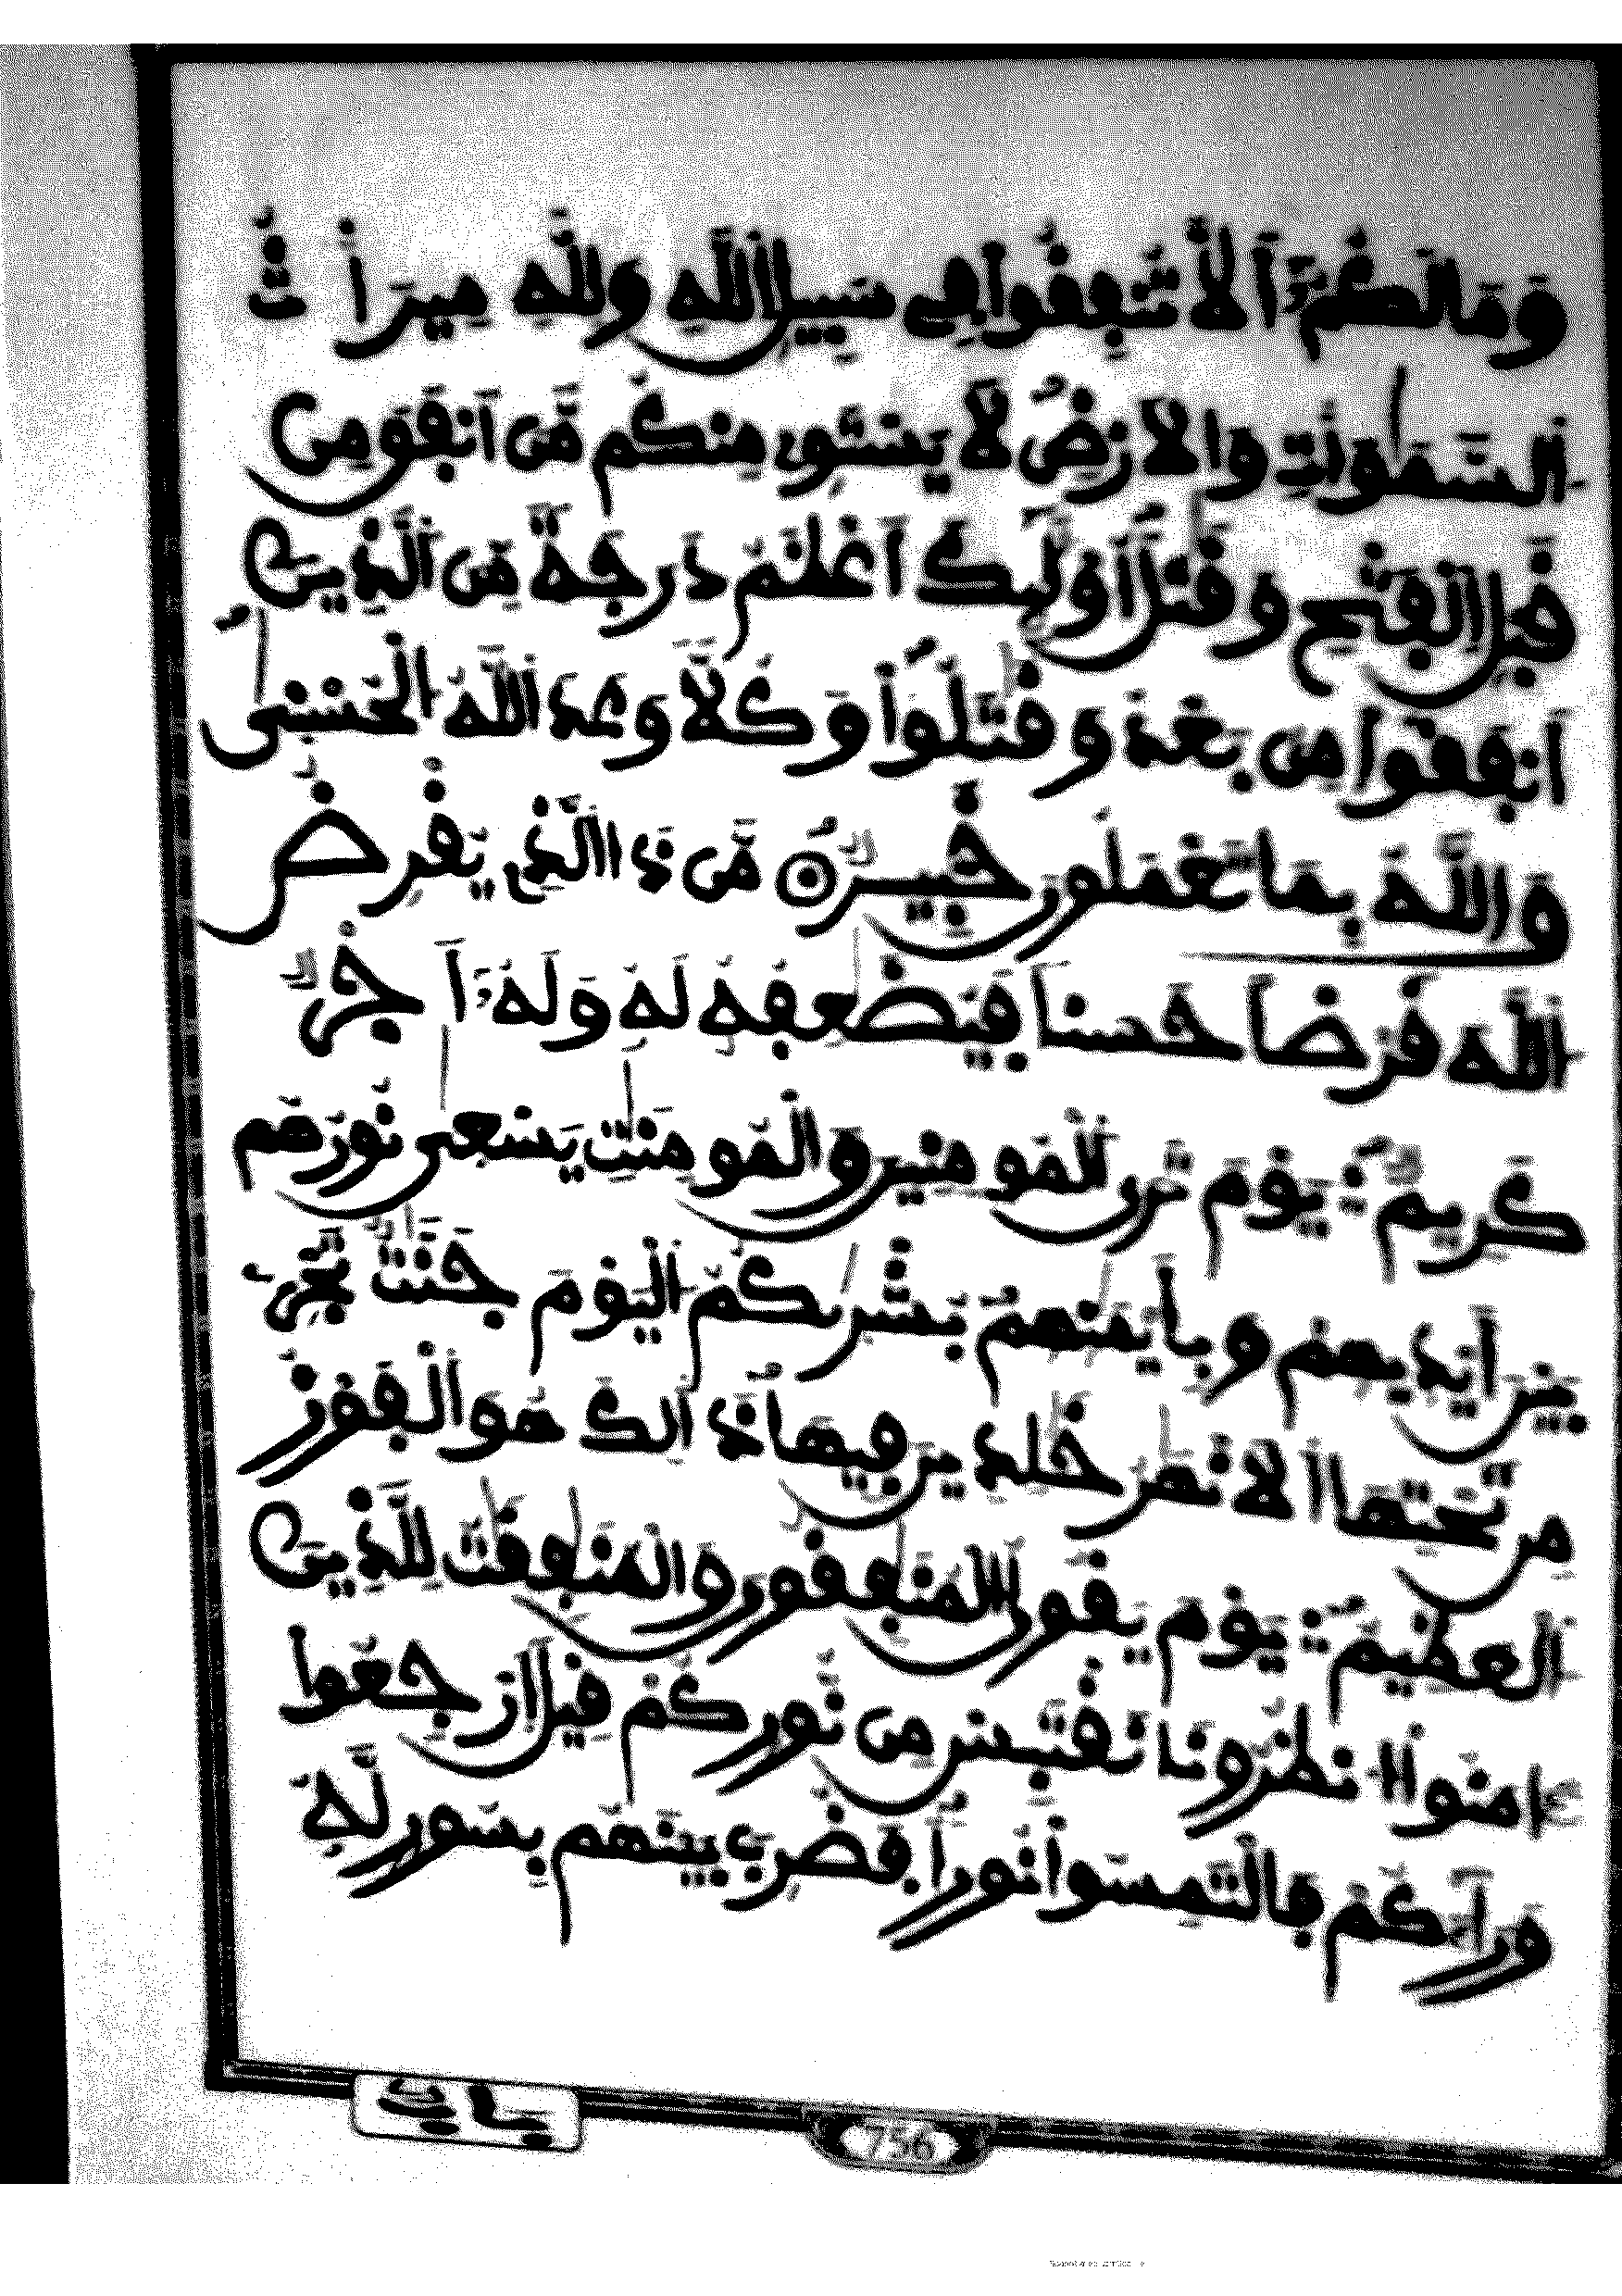 وَمَا لَكُمُۥٓ أَلَّا تُنفِقُوا۟ فِے سَبِيلِ اِ۬للَّهِ وَلِلهِ مِيرَٰثُ
اُ۬لسَّمَٰوَٰتِ وَالَارْضِ لَا يَسْتَوِے مِنكُم مَّنَ اَنفَقَ مِن
قَبْلِ اِ۬لْفَتْحِ وَقَٰتَلَ أُو۟لَٰٓئِكَ أَعْظَمُ دَرَجَةً مِّنَ اَ۬لذِينَ
أَنفَقُوا۟ مِنۢ بَعْدُ وَقَٰتَلُوا۟ وَكُلًّا وَعَدَ اَ۬للَّهُ اُ۬لْحُسْنَىٰ
وَاللَّهُ بِمَا تَعْمَلُونَ خَبِيرٌ مَّن ذَا اَ۬لذِے يُقْرِضُ
اُ۬للَّهَ قَرْضًا حَسَنًا فَيُضَٰعِفُهُۥ لَهُۥ وَلَهُۥٓ أَجْرٌ
كَرِيمٌ يَوْمَ تَرَى اَ۬لْمُومِنِينَ وَالْمُومِنَٰتِ يَسْعَىٰ نُورُهُم
بَيْنَ أَيْدِيهِمْ وَبِأَيْمَٰنِهِم بُشْرَىٰكُمُ اُ۬لْيَوْمَ جَنَّٰتٌ تَجْرِے
مِن تَحْتِهَا اَ۬لَانْهَٰرُ خَٰلِدِينَ فِيهَا ذَٰلِكَ هُوَ اَ۬لْفَوْزُ
اُ۬لْعَظِيمُ يَوْمَ يَقُولُ اُ۬لْمُنَٰفِقُونَ وَالْمُنَٰفِقَٰتُ لِلذِينَ
ءَامَنُوا۟ اُ۟نظُرُونَا نَقْتَبِسْ مِن نُّورِكُمْ قِيلَ اَ۪رْجِعُوا۟
وَرَآءَكُمْ فَالْتَمِسُوا۟ نُورًا فَضُرِبَ بَيْنَهُم بِسُورٍ لَّهُۥ
بَابٌ
756